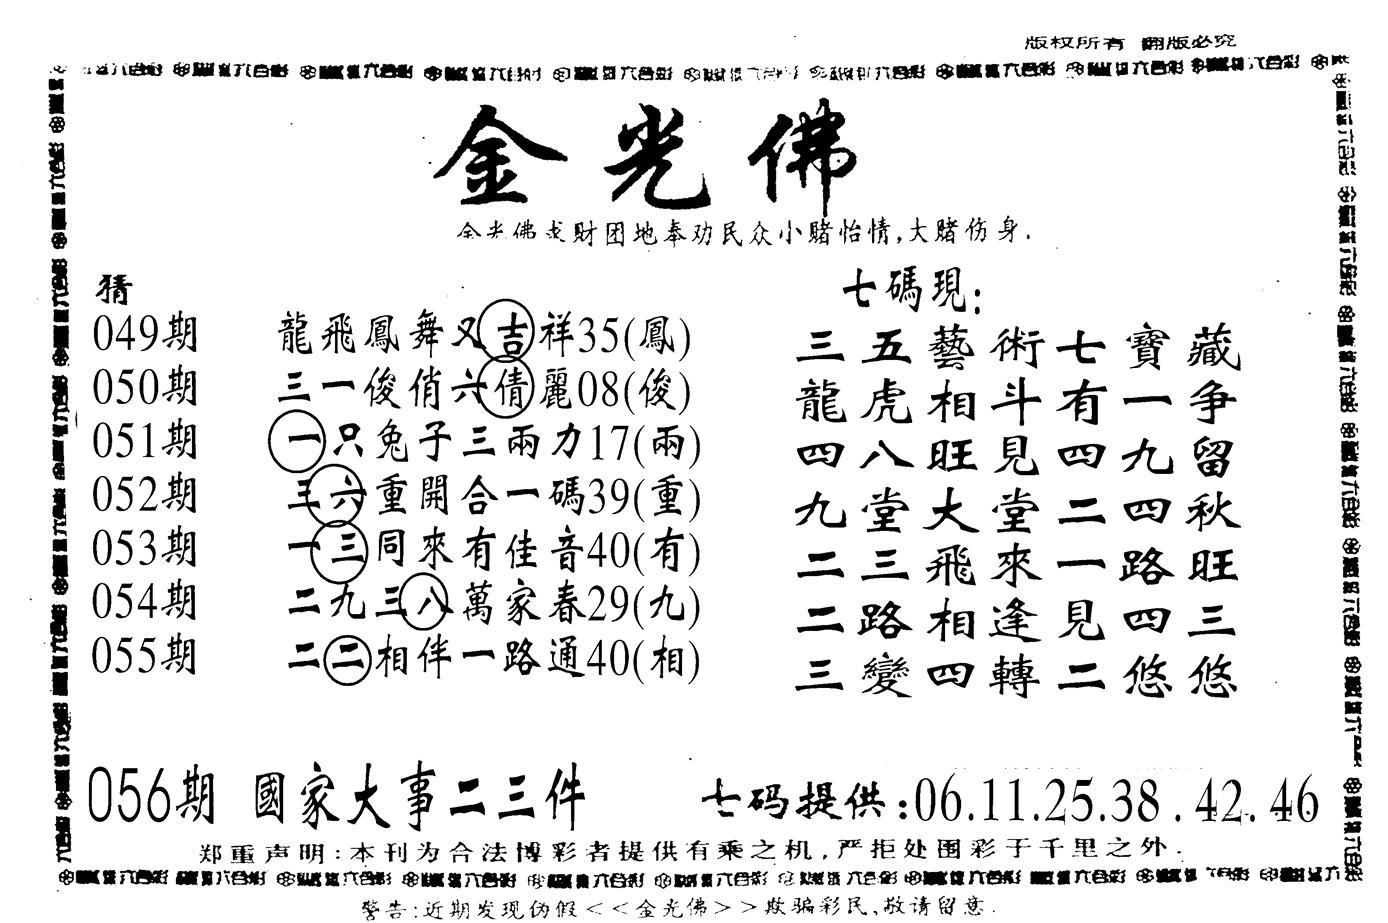 版权所有 翻版必究
金光佛
金光佛求财团地奉劝民众小赌怡情,大赌伤身.
猜
049期 龍飛鳳舞又吉祥35(鳳)
050期 三一俊俏六倩麗08(俊)
051期 一只兔子三兩力17(兩)
052期 三六重開合一碼39(重)
053期 一三同來有佳音40(有)
054期 二九三八萬家春29(九)
055期 二二相伴一路通40(相)
七碼現:
三五藝術七寶藏
龍虎相斗有一争
四八旺見四九留
九堂大堂二四秋
二三飛來一路旺
二路相逢見四三
三變四轉二悠悠
056期 國家大事二三件 七码提供:06.11.25.38.42.46
郑重声明:本刊为合法博彩者提供有乘之机,严拒处围彩于千里之外.
警告:近期发现伪假<<金光佛>>欺骗彩民,敬请留意.